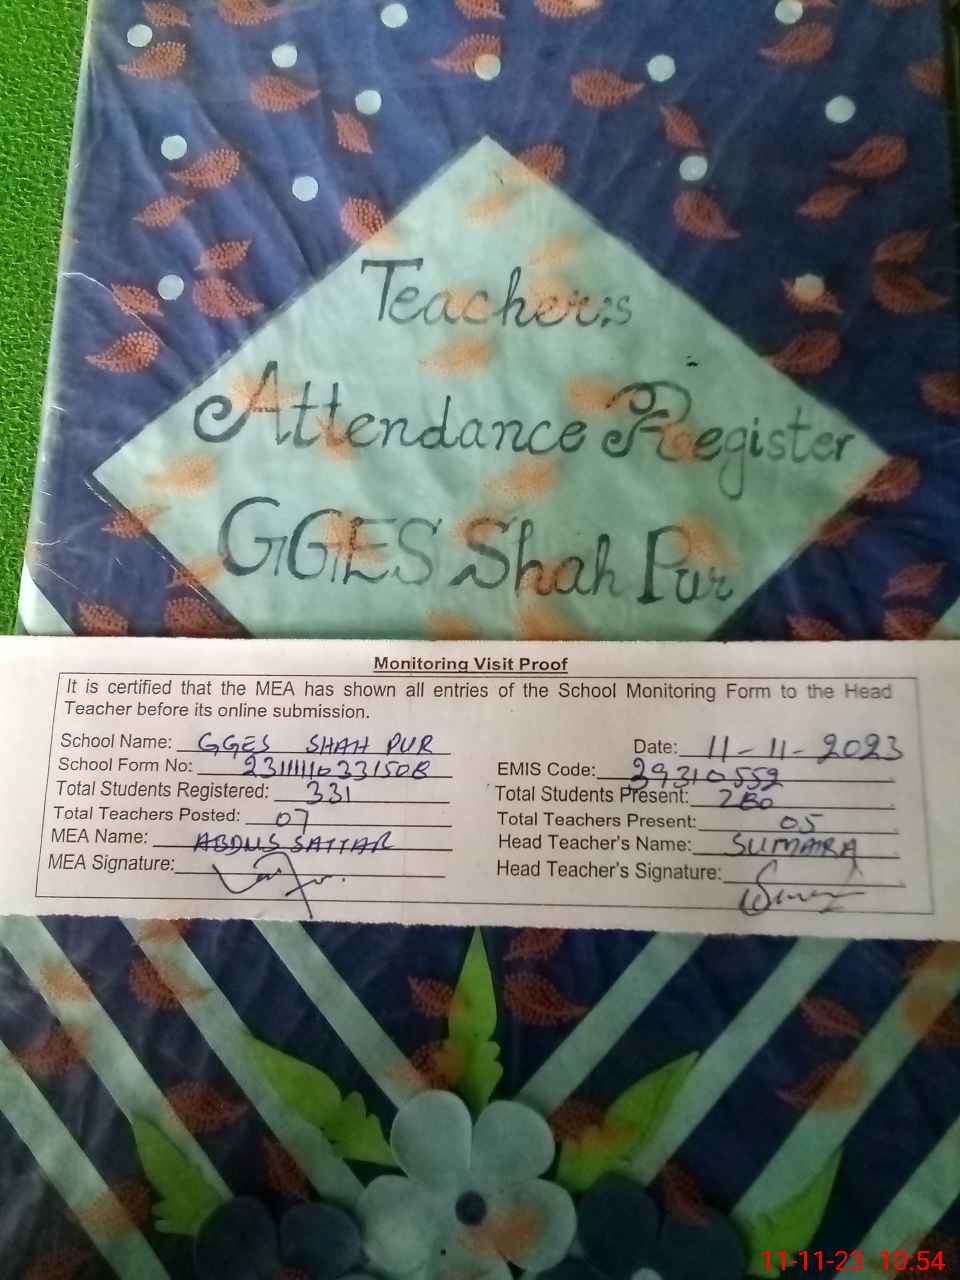 Teacher's
Attendance Register
GGES Shah Pur
Monitoring Visit Proof
It is certified that the MEA has shown all entries of the School Monitoring Form to the Head
Teacher before its online submission.
School Name: GGES SHAH PUR Date: 11-11-2023
School Form No: EMIS Code: 39310552
Total Students Registered: 331 Total Students Present: 280
Total Teachers Posted: 07 Total Teachers Present: 05
MEA Name: ABDUS SATTAR Head Teacher's Name: SUMAIRA
MEA Signature: Head Teacher's Signature:
11-11-23 10:54